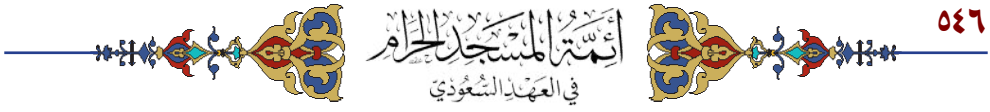 ٥٤٦
أَئِمَّةُ المَسْجِدِ الحَرَامِ
في العَهْدِ السُّعُودِيّ